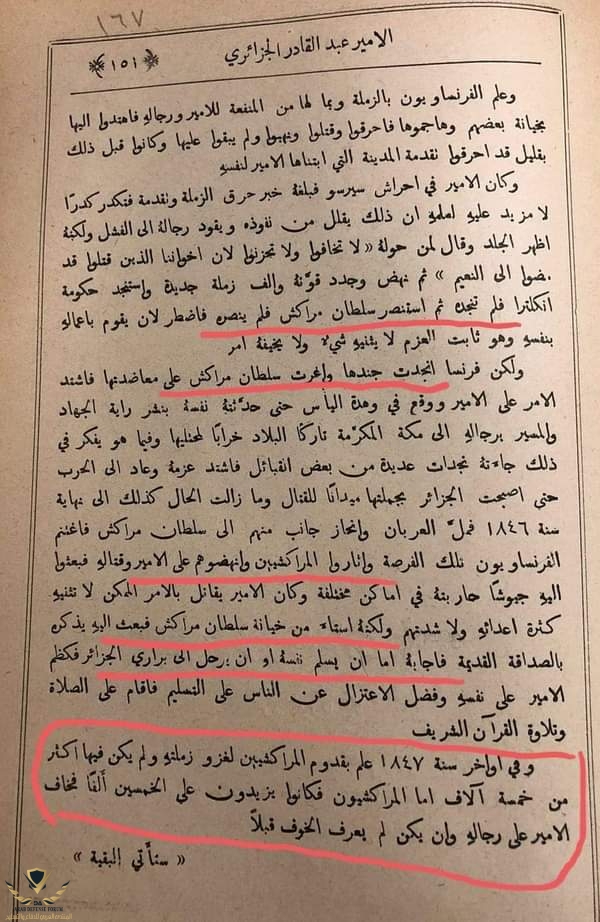 ١٦٧
الامير عبد القادر الجزائري
﴿١٥١﴾
وعلم الفرنساويون بالزملة وبما لها من المنفعة للامير ورجالهِ فاهتدوا اليها
بخيانة بعضهم وهاجموها فاحرقوا وقتلوا ونهبوا ولم يبقوا عليها وكانوا قبل ذلك
بقليل قد احرقوا تقدمة المدينة التي ابتناها الامير لنفسهِ
وكان الامير في احراش سيرسو فبلغهُ خبر حرق الزملة وتقدمة فتكدر كدرًا
لا مزيد عليهِ لعلمهِ ان ذلك يقلل من نفوذه ويقود رجالهُ الى الفشل ولكنهُ
اظهر الجلد وقال لمن حولهُ « لا تخافوا ولا تحزنوا لان اخواننا الذين قتلوا قد
مضوا الى النعيم » ثم نهض وجدد قوتهُ والف زملة جديدة واستنجد حكومة
انكلترا فلم تنجدهُ ثم استنصر سلطان مراكش فلم ينصرهُ فاضطر لان يقوم باعمالهِ
بنفسهِ وهو ثابت العزم لا يثنيهِ شيءٌ ولا يخيفهُ امر
ولكن فرنسا انجدت جندها واغرت سلطان مراكش على معاضدتها فاشتد
الامر على الامير ووقع في وهدة اليأس حتى حدثتهُ نفسهُ بنشر راية الجهاد
والمسير برجالهِ الى مكة المكرَّمة تاركًا البلاد خرابًا لمحتليها وفيما هو يفكر في
ذلك جاءتهُ نجدات عديدة من بعض القبائل فاشتد عزمهُ وعاد الى الحرب
حتى اصبحت الجزائر بجملتها ميدانًا للقتال وما زالت الحال كذلك الى نهاية
سنة ١٨٤٦ فملَّ العربان وانحاز جانب منهم الى سلطان مراكش فاغتنم
الفرنساويون تلك الفرصة واثاروا المراكشيين وانهضوهم على الامير وقتالهِ فبعثوا
اليهِ جيوشًا حاربتهُ في اماكن مختلفة وكان الامير يقاتل بالامر الممكن لا تثنيهِ
كثرة اعدائهِ ولا شدتهم ولكنهُ استاء من خيانة سلطان مراكش فبعث اليهِ يذكرهُ
بالصداقة القديمة فاجابهُ اما ان يسلم نفسهُ او ان يرحل الى براري الجزائر فكظم
الامير على نفسهِ وفضل الاعتزال عن الناس على التسليم فاقام على الصلاة
وتلاوة القرآن الشريف
وفي اواخر سنة ١٨٤٧ علم بقدوم المراكشيين لغزو زملتهِ ولم يكن فيها اكثر
من خمسة آلاف اما المراكشيون فكانوا يزيدون على الخمسين الفًا فخاف
الامير على رجالهِ وان يكن لم يعرف الخوف قبلاً
« ستأتي البقية »
ARAB DEFENSE FORUM